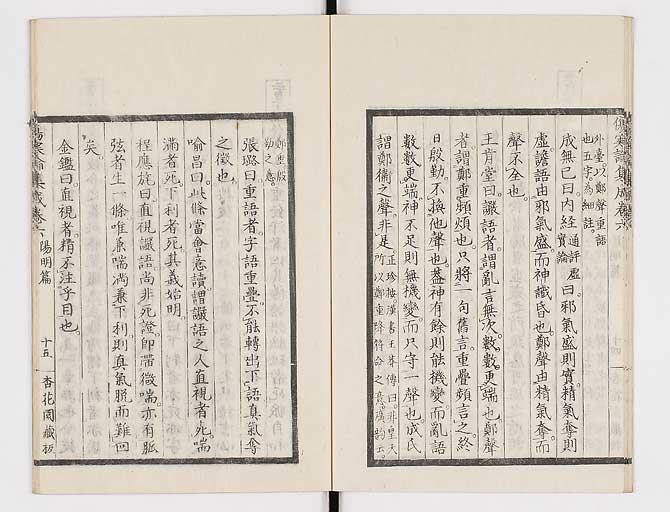 外臺以鄭聲重語
也五字爲細註
成無已曰內經通評虛實論曰邪氣盛則實精氣奪則
虛讝語由邪氣盛而神識昏也鄭聲由精氣奪而
聲不全也
王肯堂曰讝語者謂亂言無次數數更端也鄭聲
者謂鄭重頻煩也只將一句舊言重疊頻言之終
日殷勤不換他聲也蓋神有餘則能機變而亂語
數數更端神不足則無機變而只守一聲也成氏
謂鄭衞之聲非是正珍按漢書王莽傳曰非皇天
所以鄭重降符命之意廣韵云
鄭重殷
勤之意
張璐曰重語者字語重疊不能轉出下語真氣奪
之徵也
喻昌曰此條當會意讀謂讝語之人直視者死喘
滿者死下利者死其義始明
程應旄曰直視讝語尚非死證卽帶微喘亦有脈
弦者生一條唯兼喘滿兼下利則真氣脫而難回
矣
金鑑曰直視者精不注乎目也
集成卷六 陽明篇 十五 杏花園藏板